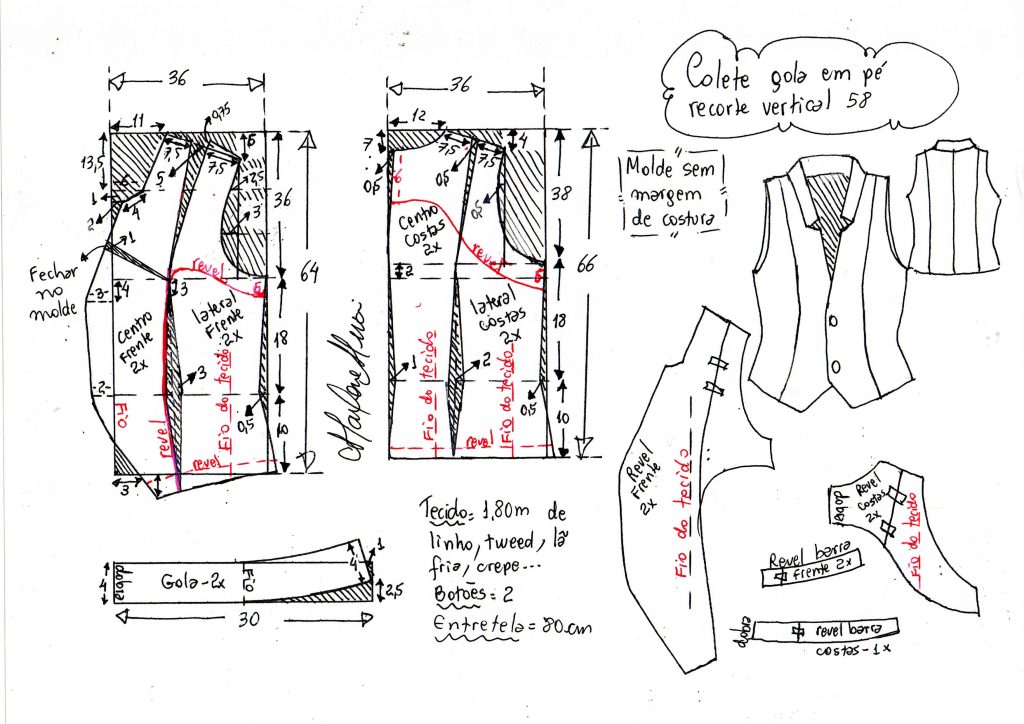 Colete gola em pé
recorte vertical 58
Molde sem
margem
de costura
36
11
0,75
13,5
7,5
7,5
6
5
2,5
1
6
4
2
3
36
64
1
Fechar
no
molde
revel
6
4
3
3
Centro
Frente
2x
lateral
Frente
2x
18
2
3
Fio
revel
Fio do tecido
0,5
10
revel
3
36
12
7
7,5
7,5
4
0,5
6
0,5
0,5
38
66
Centro
Costas
2x
revel
6
2
lateral
costas
2x
18
1
2
Fio do tecido
Fio do tecido
0,5
10
revel
Marlene Mukai
4
dobra
Gola-2x
Fio
4
1
2,5
30
Tecido= 1,80m de
linho, tweed, lã
fria, crepe...
Botões= 2
Entretela= 80cm
Revel
Frente
2x
Fio do tecido
dobra
Revel
Costas
2x
Fio do tecido
Revel barra
frente 2x
dobra
revel barra
costas-1x